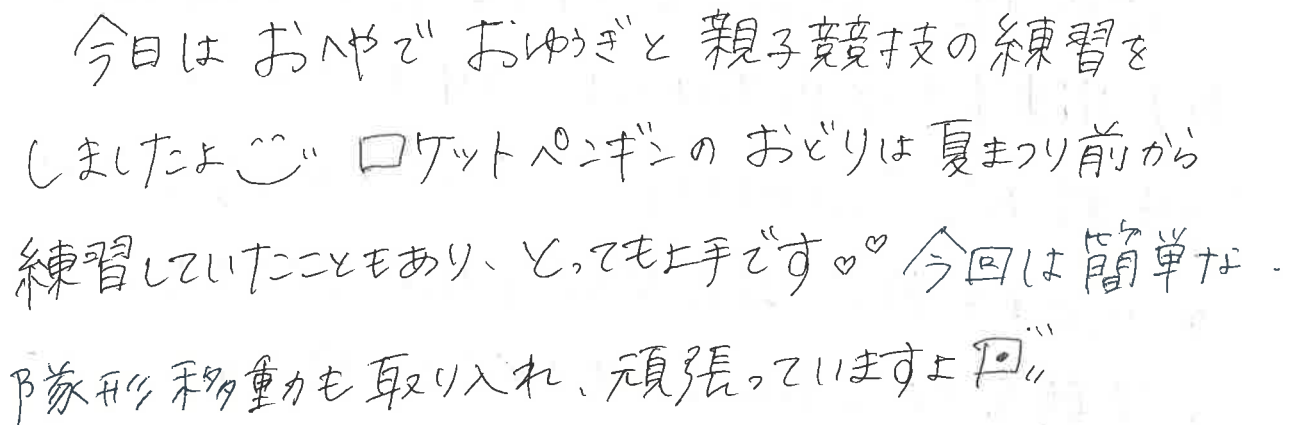 今日は おへやで おゆうぎと 親子競技の練習を
しましたよ ロケットペンギンの おどりは 夏まつり前から
練習していたこともあり、とっても上手です。♡♡ 今回は簡単な
隊形移動も取り入れ、頑張っていますよ